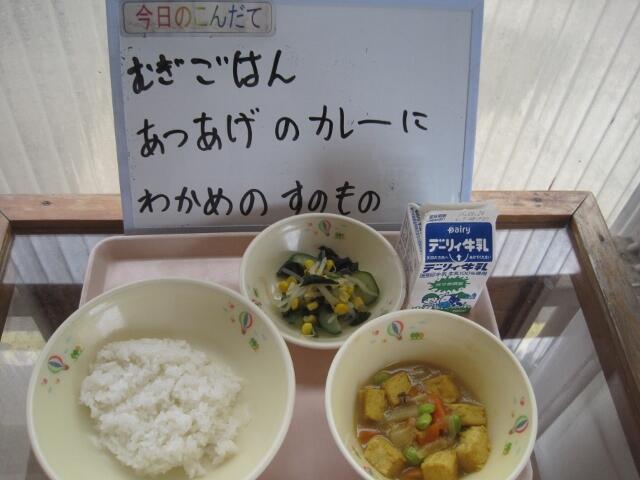 今日のこんだて
むぎごはん
あつあげのカレーに
わかめのすのもの
Dairy
デーリィ牛乳
デーリィ牛乳